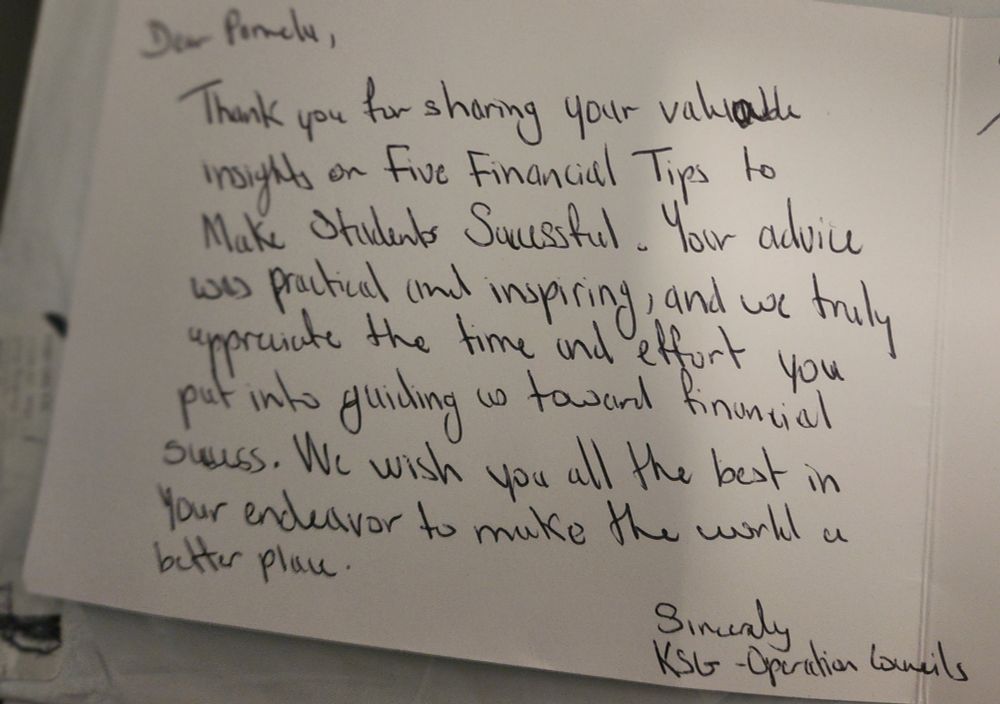 Dear Pamela,
Thank you for sharing your valuable
insights on Five Financial Tips to
Make Students Successful. Your advice
was practical and inspiring, and we truly
appreciate the time and effort you
put into guiding us toward financial
success. We wish you all the best in
your endeavor to make the world a
better place.
Sincerely
KSG - Operation Councils